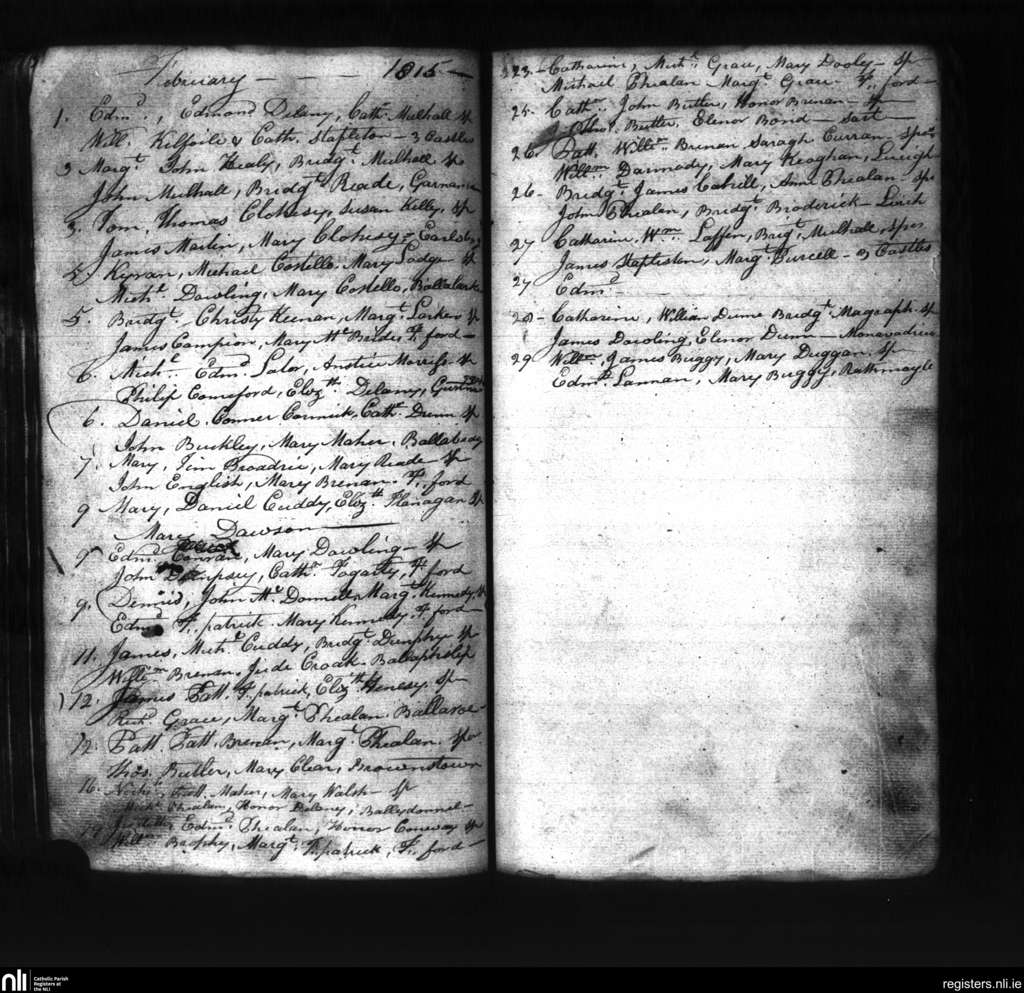 February 1815
1. Edmd., Edmond Delany, Cath. Mulhall Sp
Will. Kilfoile & Cath. Stapleton - 3 Castles
3 Margt. John Healy, Bridgt. Mulhall Sp
John Mulhall, Bridgt. Reade,
3. Tom, Thomas Clohesy, Susan Kelly, Sp
James Marlin, Mary Clohesy
Kyran, Michael Costello, Mary Sp
Michl. Dowling, Mary Costello,
5. Bridgt. Christy Keenan, Margt. Sp
James Campion, Mary Mc F. ford
6. Michl. Edmd. Lalor, Anstice Sp
Philip Comerford, Elizth. Delany,
6. Daniel. Conner Cormick, Cath. Sp
John Buckley, Mary Maher,
7. Mary, Jim Broadric, Mary Reade Sp
John English, Mary Brenan. F. ford
9 Mary, Daniel Cuddy, Elizth. Flanagan Sp
Mary Dawson
9 Edmd. Conran, Mary Dowling - Sp
John Dempsey, Cathn. Fogarty, F. ford
9. Dennis, John Mc Donnell Margt. Kennedy, Sp
Edmd. F. patrick. Mary Kennedy F. ford
11. James, Michl. Cuddy, Bridgt. Dunphy Sp
Willm. Brenan, Jude Croak
12. James Patt. F. patrick, Elizth Henesy. Sp
Richd. Grace, Margt. Phealan.
12. Patt. Patt. Brenan, Margt. Phealan. Spo.
Thos. Butler, Mary Clear, Brownstown
16. Patt. Maher, Mary Walsh - Sp
Phealan, Honor Delaney, Ballydonnel
Edmd. Phealan, Honor Sp
Willm. Brophy, Margt. F. patrick, F. ford
23. Catharine, Michl. Grace, Mary Dooley - Sp
Michael Phealan Margt. Grace F. ford
25. Cathn. John Butler, Honor Brenan - Sp
Butler. Elenor Bond
26. Patt. Willm. Brenan Saragh Curran - Spos
Willm. Darmody, Mary Keaghan,
26. Bridgt. James Cahill, Ann Phealan Sp.
John Phealan, Bridgt. Broderick
27 Catharine. Wm. Laffen, Brigt. Mulhall, Spos
James Stapleton, Margt. Purcell - 3 Castles
27 Edmd.
28 - Catharine, William Dunne Bridgt. Magragh Sp
James Dowling, Elenor Dunne
29 Willm. James Buggy, Mary Duggan. Sp
Edmd. Lannan, Mary Buggy, Rathmoyle
nli
Catholic Parish
Registers at
the NLI
registers.nli.ie